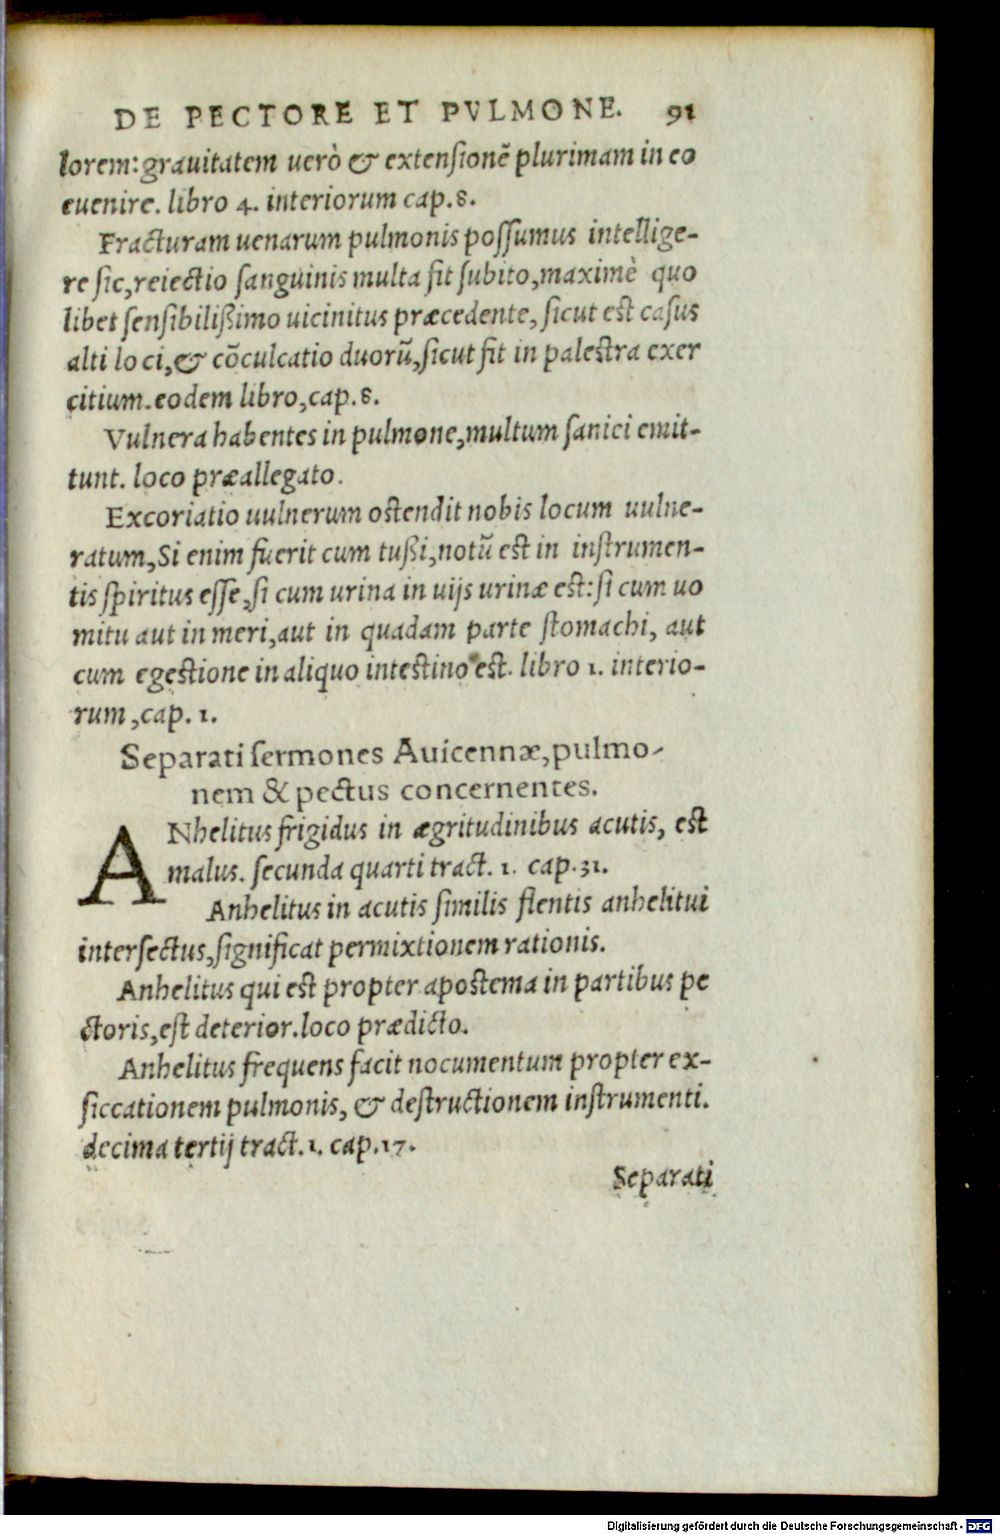 DE PECTORE ET PVLMONE. 91
lorem: grauitatem uerò & extensionẽ plurimam in eo
euenire. libro 4. interiorum cap. 8.
Fracturam uenarum pulmonis possumus intellige-
re sic, reiectio sanguinis multa fit subito, maximè quo
libet sensibilißimo uicinitus præcedente, sicut est casus
alti loci, & cõculcatio duorũ, sicut fit in palestra exer
citium. eodem libro, cap. 8.
Vulnera habentes in pulmone, multum saniei emit-
tunt. loco præallegato.
Excoriatio uulnerum ostendit nobis locum uulne-
ratum, Si enim fuerit cum tußi, notũ est in instrumen-
tis spiritus esse, si cum urina in uijs urinæ est: si cum uo
mitu aut in meri, aut in quadam parte stomachi, aut
cum egestione in aliquo intestino est. libro 1. interio-
rum, cap. 1.
Separati sermones Auicennæ, pulmo-
nem & pectus concernentes.
ANhelitus frigidus in ægritudinibus acutis, est
malus. secunda quarti tract. 1. cap. 31.
Anhelitus in acutis similis flentis anhelitui
intersectus, significat permixtionem rationis.
Anhelitus qui est propter apostema in partibus pe
ctoris, est deterior. loco prædicto.
Anhelitus frequens facit nocumentum propter ex-
siccationem pulmonis, & destructionem instrumenti.
decima tertij tract. 1. cap. 17.
Separati
Digitalisierung gefördert durch die Deutsche Forschungsgemeinschaft - DFG